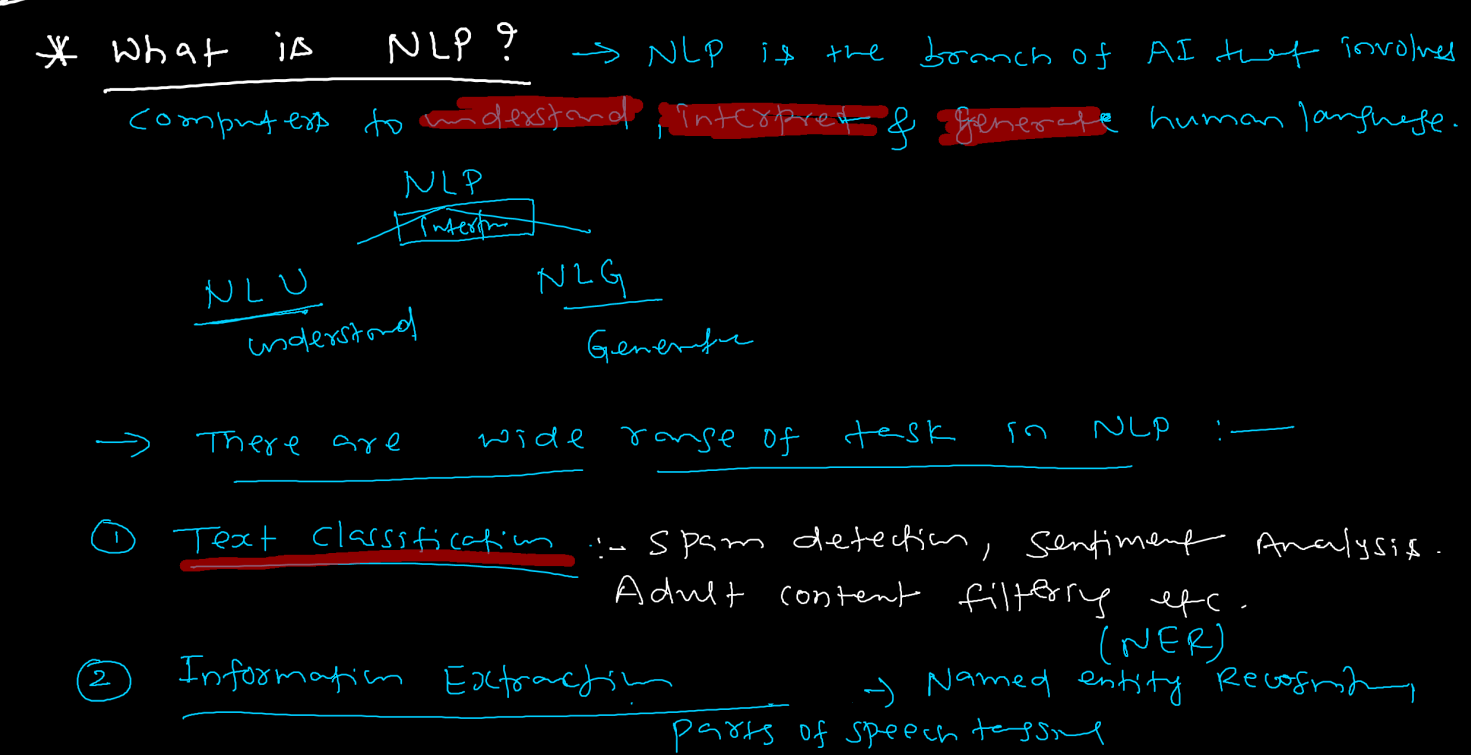 * What is NLP? → NLP is the branch of AI that involves
computers to understand, interpret & generate human language.
NLP
NLU NLG
understand Generate
→ There are wide range of task in NLP :—
① Text Classification :- Spam detection, Sentiment Analysis.
Adult content filtering etc.
(NER)
② Information Extraction → Named entity Recognition,
parts of speech tagging